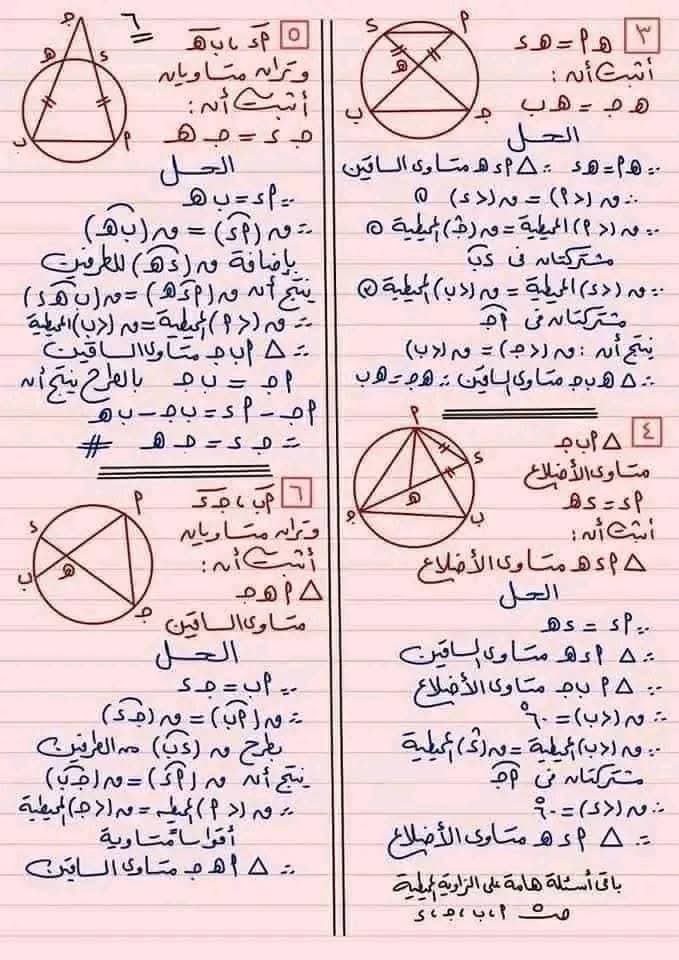 ٣ هـ م = هـ ء
أثبت أنه :
هـ جـ = هـ ب
الحل
∵ هـ م = هـ ء ∴ △ م ء هـ متساوى الساقين
∴ ق (< م) = ق (< ء) ①
∵ ق (< م) المحيطية = ق (جـ) المحيطية ②
مشتركتان فى ء ب
∵ ق (< ء) المحيطية = ق (< ب) المحيطية
مشتركتان فى م جـ
ينتج أنه : ق (< جـ) = ق (< ب)
∴ △ هـ ب جـ متساوى الساقين ∴ هـ جـ = هـ ب
٤ △ م ب جـ
متساوى الأضلاع
م ء = ء هـ
أثبت أنه :
△ م ء هـ متساوى الأضلاع
الحل
∵ م ء = ء هـ
∴ △ م ء هـ متساوى الساقين
∵ △ م ب جـ متساوى الأضلاع
∴ ق (< ب) = ٦٠°
∵ ق (< ب) المحيطية = ق (ء) المحيطية
مشتركتان فى م جـ
∴ ق (< ء) = ٦٠°
∴ △ م ء هـ متساوى الأضلاع
باقى أسئلة هامة على الزاوية المحيطية
م ، ب ، جـ ، ء
٦
٥ م ء ، ب هـ
وتران متساويان
أثبت أنه :
جـ ء = جـ هـ
الحل
∵ م ء = ب هـ
∴ ق (م ء) = ق (ب هـ)
بإضافة ق (ء هـ) للطرفين
ينتج أنه ق (م ء هـ) = ق (ب هـ ء)
∴ ق (< م) المحيطية = ق (< ب) المحيطية
∴ △ م ب جـ متساوى الساقين
م جـ = ب جـ بالطرح ينتج أنه
م جـ - م ء = ب جـ - ب هـ
∴ جـ ء = جـ هـ #
٦ م ب ، جـ ء
وتران متساويان
أثبت أنه :
△ م هـ جـ
متساوى الساقين
الحل
∵ م ب = جـ ء
∴ ق (م ب) = ق (جـ ء)
بطرح ق (ء ب) من الطرفين
ينتج أنه ق (م ء) = ق (جـ ب)
∴ ق (< م) المحيطية = ق (< جـ) المحيطية
أقواسا متساوية
∴ △ م هـ جـ متساوى الساقين